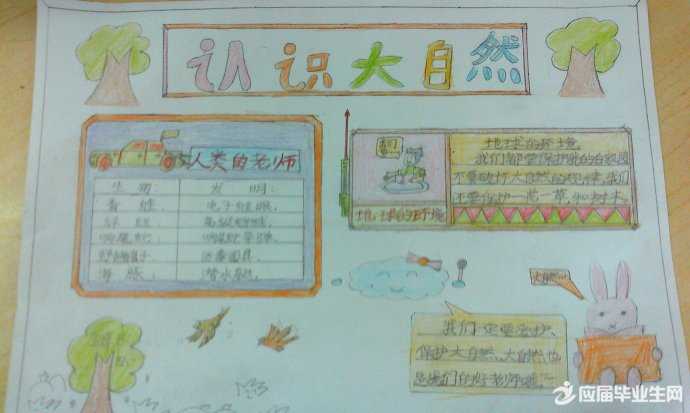 认识大自然
人类的老师
生物： 发明：
青蛙， 电子蛙眼，
响尾蛇， 响尾蛇导弹，
野猪鼻子， 防毒面具，
海豚， 潜水艇，
地球的环境
我们都要保护我们的家园
不要破坏大自然的规律，我们
还要保护一花一草，和树木。
地球的环境
大自然…
我们一定要爱护、
保护大自然，大自然也
是我们的好老师啦。
应届毕业生网